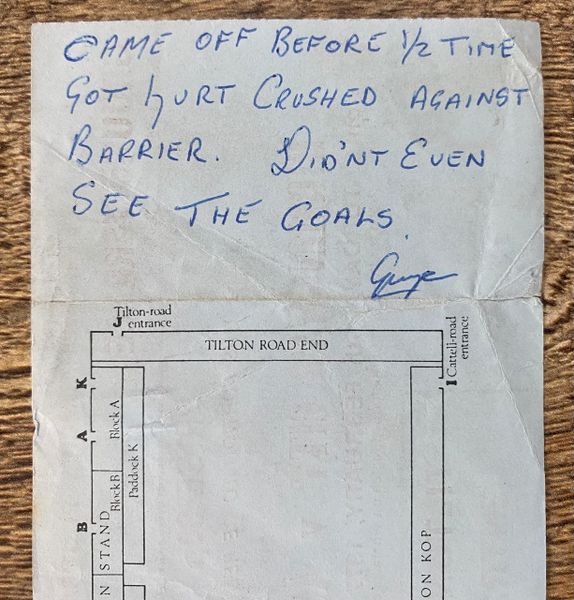 CAME OFF BEFORE 1/2 TIME
GOT HURT CRUSHED AGAINST
BARRIER. DID'NT EVEN
SEE THE GOALS.
Tilton-road
J entrance
TILTON ROAD END
Cattell-road
I entrance
K
A
B
Block A
Block B
Paddock K
N STAND
ON KOP